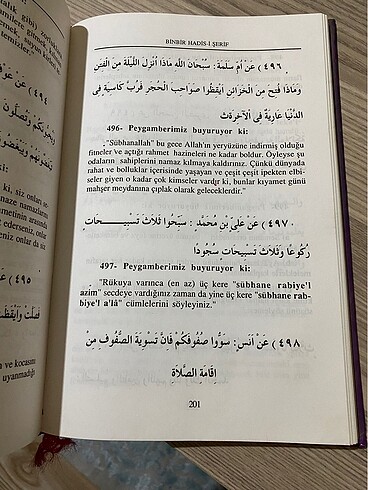 BİNBİR HADİS-İ ŞERİF
٤٩٦) عَنْ اُمِّ سَلَمَةَ: سُبْحَانَ اللّٰهِ مَاذَا اُنْزِلَ اللَّيْلَةَ مِنَ الْفِتَنِ
وَمَاذَا فُتِحَ مِنَ الْخَزَائِنِ اَيْقِظُوا صَوَاحِبَ الْحُجَرِ فَرُبَّ كَاسِيَةٍ فِى
الدُّنْيَا عَارِيَةٌ فِى الْاٰخِرَةِ
496- Peygamberimiz buyuruyor ki:
"Sübhanallah" bu gece Allah'ın yeryüzüne indirmiş olduğu
fitneler ve açtığı rahmet hazineleri ne kadar boldur. Öyleyse şu
odaların sahiplerini namaz kılmaya kaldırınız. Çünkü dünyada
rahat ve bolluklar içerisinde yaşayan ve çeşit çeşit ipekten elbi-
seler giyen o kadar çok kimseler vardır ki, bunlar kıyamet günü
mahşer meydanına çıplak olarak geleceklerdir."
٤٩٧) عَنْ عَلِىِّ بْنِ مُحَمَّدٍ : سَبِّحُوا ثَلَاثَ تَسْبِيحَاتٍ
رُكُوعًا وَثَلَاثَ تَسْبِيحَاتٍ سُجُودًا
497- Peygamberimiz buyuruyor ki:
"Rüküya varınca (en az) üç kere "sübhane rabiye'l
azim" secdeye vardığınız zaman da yine üç kere "sübhane rab-
biye'l a'lâ" cümlelerini söyleyiniz."
٤٩٨) عَنْ اَنَسٍ: سَوُّوا صُفُوفَكُمْ فَاِنَّ تَسْوِيَةَ الصُّفُوفِ مِنْ
اِقَامَةِ الصَّلَاةِ
201